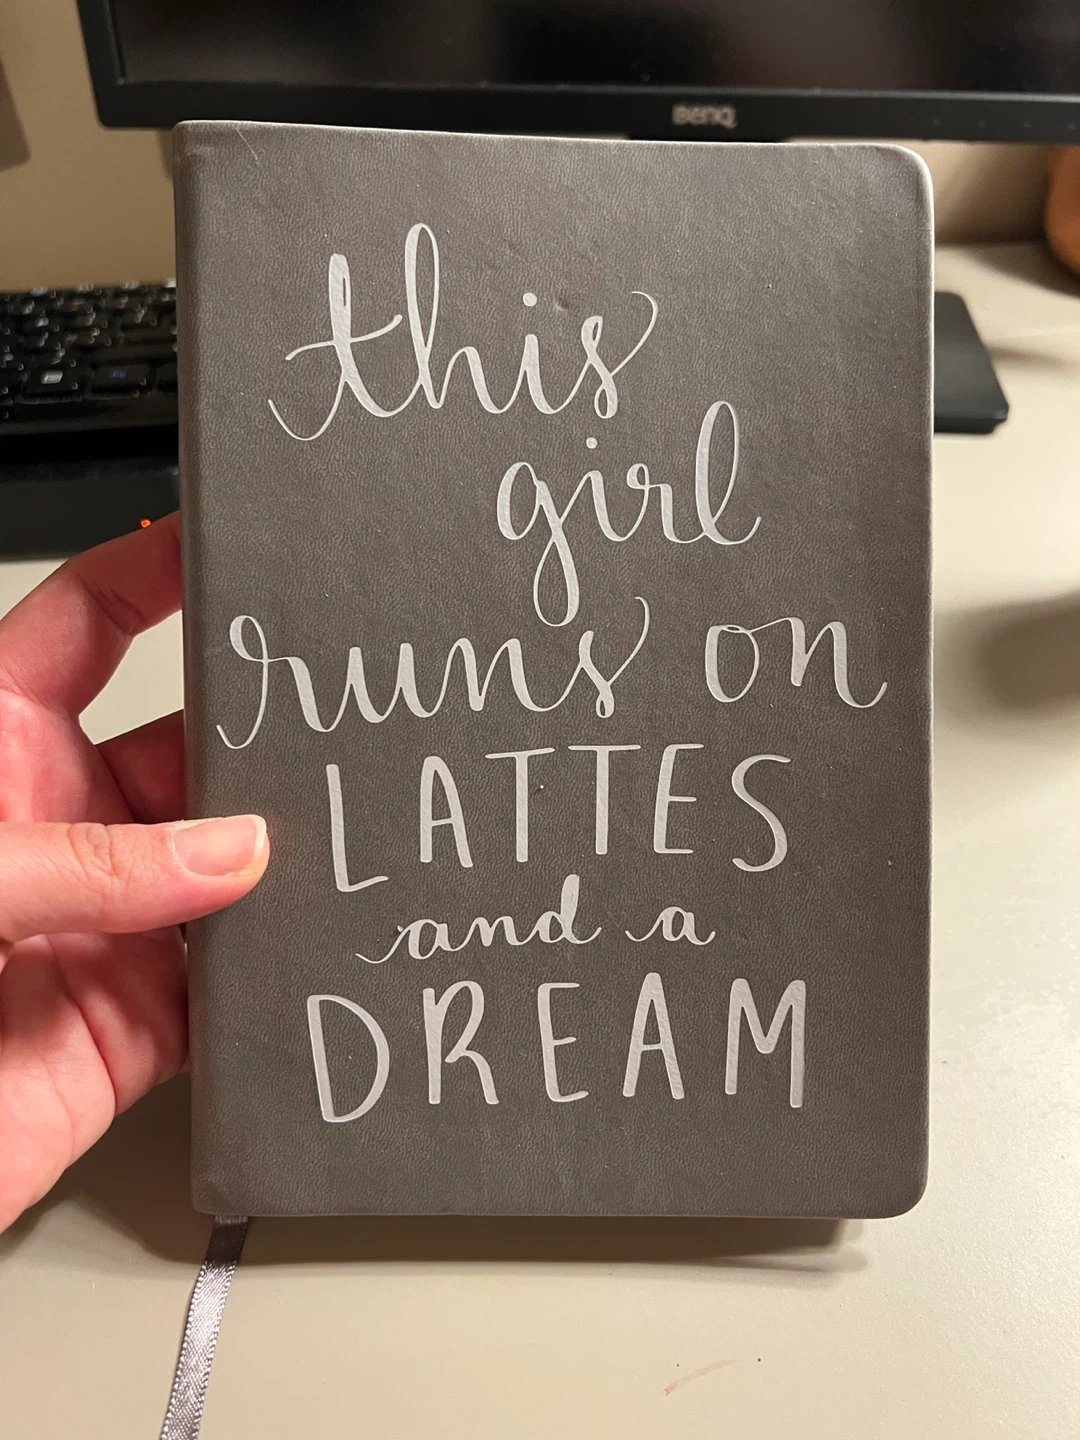 BenQ
this
girl
runs on
LATTES
and a
DREAM